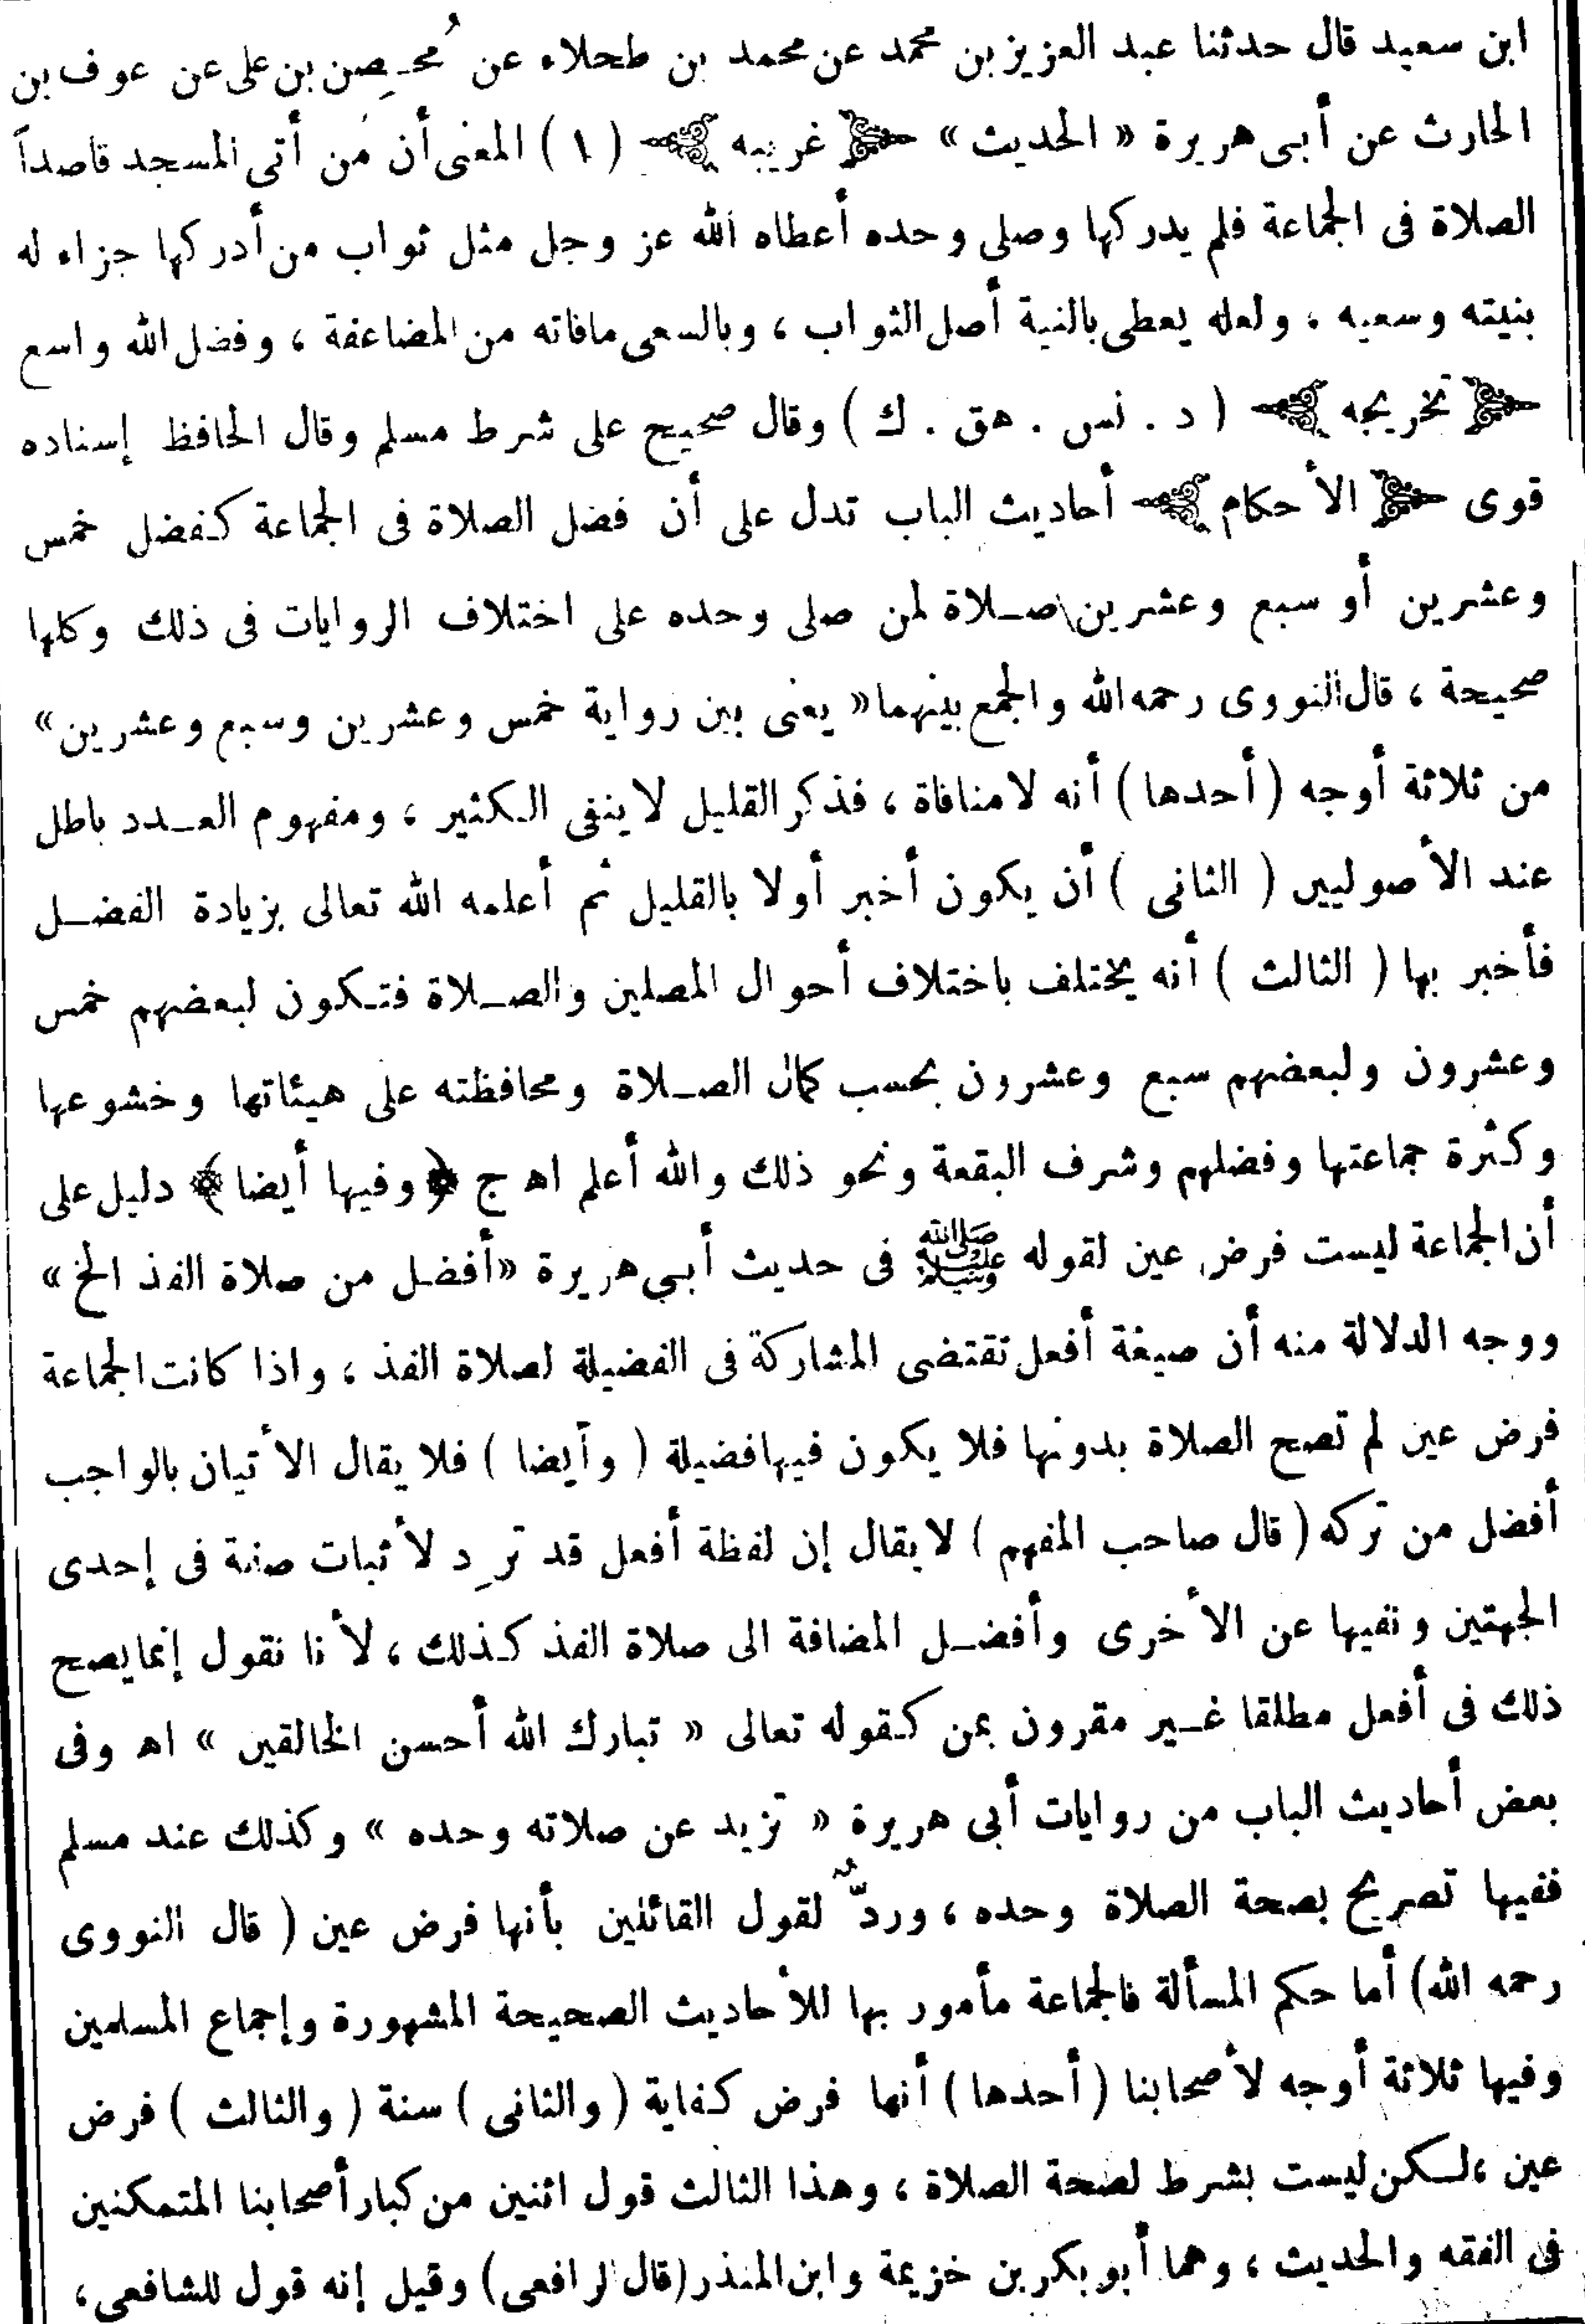 ابن سعيد قال حدثنا عبد العزيز بن محمد عن محمد بن طحلاء عن مُحصِن بن على عن عوف بن
الحارث عن أبى هريرة « الحديث » ﴿ غريبه ﴾ ( ١ ) المعنى أن من أتى المسجد قاصداً
الصلاة فى الجماعة فلم يدركها وصلى وحده أعطاه الله عز وجل مثل ثواب من أدركها جزاء له
بنيته وسعيه ، ولعله يعطى بالنية أصل الثواب ، وبالسعى مافاته من المضاعفة ، وفضل الله واسع
﴿ تخريجه ﴾ ( د . نس . هق . ك ) وقال صحيح على شرط مسلم وقال الحافظ إسناده
قوى ﴿ الأحكام ﴾ أحاديث الباب تدل على أن فضل الصلاة فى الجماعة كفضل خمس
وعشرين أو سبع وعشرين صلاة لمن صلى وحده على اختلاف الروايات فى ذلك وكلها
صحيحة ، قال النووى رحمه الله والجمع بينهما « يعنى بين رواية خمس وعشرين وسبع وعشرين »
من ثلاثة أوجه ( أحدها ) أنه لامنافاة ، فذكر القليل لاينفى الكثير ، ومفهوم العدد باطل
عند الأصوليين ( الثانى ) أن يكون أخبر أولا بالقليل ثم أعلمه الله تعالى بزيادة الفضل
فأخبر بها ( الثالث ) أنه يختلف باختلاف أحوال المصلين والصلاة فتكون لبعضهم خمس
وعشرون ولبعضهم سبع وعشرون بحسب كمال الصلاة ومحافظته على هيئاتها وخشوعها
وكثرة جماعتها وفضلهم وشرف البقعة ونحو ذلك والله أعلم اه ج ﴿ وفيها أيضا ﴾ دليل على
أن الجماعة ليست فرض عين لقوله ﷺ فى حديث أبى هريرة « أفضل من صلاة الفذ الخ »
ووجه الدلالة منه أن صيغة أفعل تقتضى المشاركة فى الفضيلة لصلاة الفذ ، واذا كانت الجماعة
فرض عين لم تصح الصلاة بدونها فلا يكون فيها فضيلة ( وأيضا ) فلا يقال الأتيان بالواجب
أفضل من تركه ( قال صاحب المفهم ) لا يقال إن لفظة أفعل قد ترِد لأثبات صفة فى إحدى
الجهتين ونفيها عن الأخرى وأفضل المضافة الى صلاة الفذ كذلك ، لأنا نقول إنما يصح
ذلك فى أفعل مطلقا غير مقرون بمن كقوله تعالى « تبارك الله أحسن الخالقين » اه وفى
بعض أحاديث الباب من روايات أبى هريرة « تزيد عن صلاته وحده » وكذلك عند مسلم
ففيها تصريح بصحة الصلاة وحده ، وردٌّ لقول القائلين بأنها فرض عين ( قال النووى
رحمه الله ) أما حكم المسألة فالجماعة مأمور بها للأحاديث الصحيحة المشهورة وإجماع المسلمين
وفيها ثلاثة أوجه لأصحابنا ( أحدها ) أنها فرض كفاية ( والثانى ) سنة ( والثالث ) فرض
عين ، لكن ليست بشرط لصحة الصلاة ، وهذا الثالث قول اثنين من كبار أصحابنا المتمكنين
فى الفقه والحديث ، وهما أبو بكر بن خزيمة وابن المنذر ( قال الرافعى ) وقيل إنه قول للشافعى ،